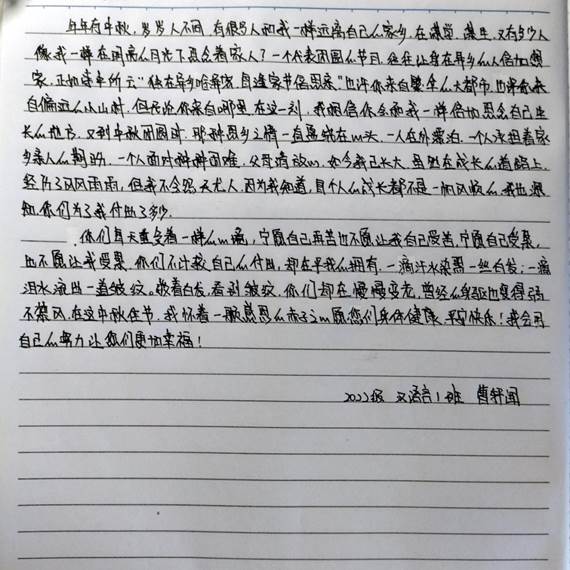 年年有中秋，岁岁人不同，有很多人和我一样远离自己的家乡，在课堂，谋生，又有多少人
像我一样在同乘的月光下思念着家人？一个代表团圆的节日，往往让身在异乡的人倍加想
家，正如诗中所云“独在异乡为异客，每逢佳节倍思亲”也许你来自繁华的大都市，也许你来
自偏远的小山村，但无论你来自哪里，在这一刻，我相信你会和我一样倍加思念自己生
长的地方，又到中秋团圆时，那种思乡之情一直萦绕在心头，一人在外漂泊，一个人承担着家
乡亲人的期盼，一个人面对种种困难，父母请放心，如今我已长大，虽然在成长的道路上，
经历了风风雨雨，但我不会怨天尤人，因为我知道，每个人的成长都不是一帆风顺的，我也深
知，你们为了我付出了多少。
你们每天重复着一样的心愿，宁愿自己再苦也不愿让我自己受苦，宁愿自己受累，
也不愿让我受累，你们不计较自己的付出，却在乎我的拥有，一滴汗水染黑一丝白发；一滴
泪水流出一道皱纹。散着白发，看到皱纹，你们却在慢慢变老，曾经的身躯也变得弱
不禁风，在这中秋佳节，我怀着一颗感恩的赤子之心愿您们身体健康，平安快乐！我会用
自己的努力让你们更加幸福！
2022级 汉语言1班 曹轩闻